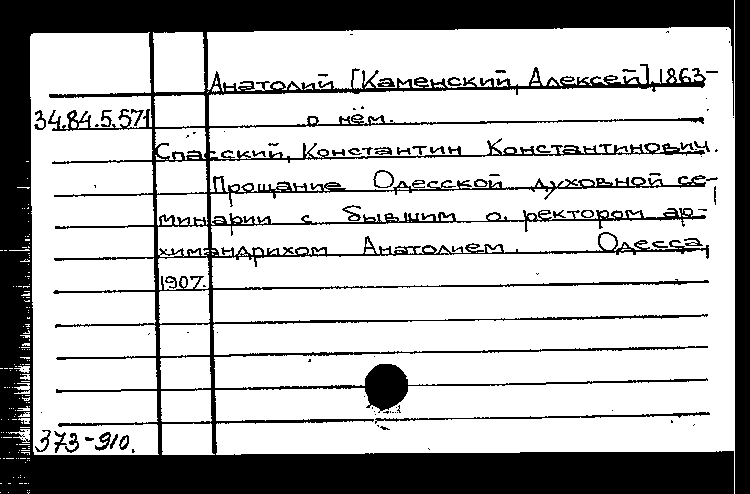 Анатолий [Каменский, Алексей], 1863-
34.84.5.571 о нём.
Спасский, Константин Константинович.
Прощание Одесской духовной се-
минарии с бывшим о. ректором ар-
химандрихом Анатолием. Одесса,
1907.
373-910.